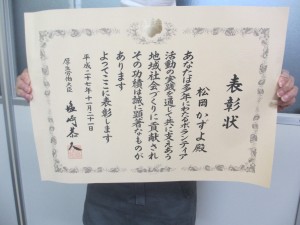 表彰状
松岡かすよ殿
あなたは多年にわたるボランティア
活動の実践を通じて共に支えあう
地域社会づくりに貢献され
その功績は誠に顕著なものが
あります
よってここに表彰します
平成二十七年十一月二十一日
厚生労働大臣 塩崎恭久